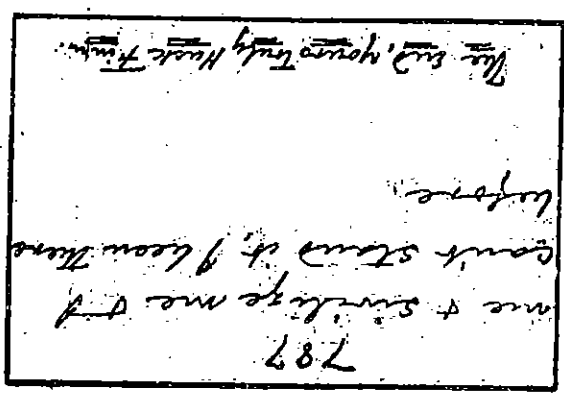 787
me & sivilize me & I
can't stand it. I been there
before.
The End, yours Truly Huck Finn.